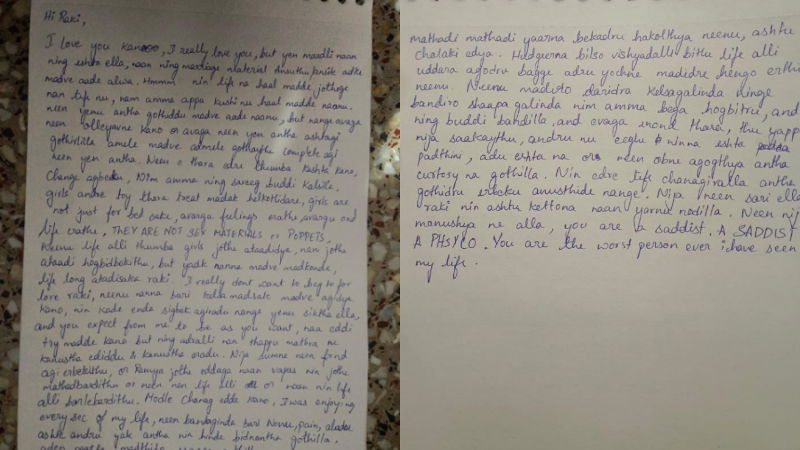 Hi Raki,
I love you kanooo, I really love you, but yen maadli naan
ning eshta ella, naan ning marriage material
madve aade alwa. Hmmm nin life na haal madde, jothege
nan life nu, nam amma appa kushi nu haal madde naanu.
neen yenu antha gothuddu madve aade naanu, but nange avaga
neen olleyavne kano or avaga neen yen antha ashtagi
gothirlilla amele madve admele gothaythu complete agi
neen yen antha. Neenu e thara adru thumba kashta kano,
Change agbeku, Nim amma ning sareeg buddi Kalsilla.
girls andre toy thara treat madat helkottidare, girls are
not just for bed cake, avarga feelings erathe, avargu ond
life erathe, THEY ARE NOT SEX MATERIALS or POPPETS.
Neenu life alli thumba girls jothe ataadidya, nan jothe
ataadi hogbidbekithu, but yadk nanna madve madkonde,
life long atadisaka raki. I really dont want to beg to for
love raki, neenu nanna bari kelsa madsalk madve agidya
kano, nin kade enda sigbek agiradu nange yenu siktha ella,
and you expect from me to be as you want, naa eddi
try madde kano but ning adralli nan thappu mathra ne
kanustha ediddu & kanustha oradu. Nija sumne neen frnd
agi erbekithu, or Ramya jothe eddaga naan vapas nin jothe
mathadbardithu or neen nan life alli or naan nin life
alli barlebardithu. Modle Chanag edde kano, I was enjoying
every sec of my life, neen bandaginda bari Novu, pain,
ashte andru yak antha nin hinde bidnantha gothilla,
mathadi mathadi yaarna bekadru hakolthya neenu, ashtu
chalaki edya. Hudgeerna bilso vishyadalli bittu life alli
uddara agodru bagge adru yochne madidre hengo erthidde
neenu. Neenu madiro daridra kelsagalinda ninge
bandiro shaapa galinda nim amma bega hogbitru, andru
ning buddi bandilla, and evaga inond thara, thu yappa
nija saakaythu, andru nu eeglu ninna eshta
padthini, adu eshta na or neen obne agogthya antha
curtosy na gothilla. Nin edre life chanagiralla antha
gothidru erbeku anusthide nange. Nija neen sari ella
raki nin ashtu kettona naan yarnu nodilla. Neen nij
manushya ne alla, you are a saddist. A SADDIST
A PHSYCO. You are the worst person ever i have seen
my life.